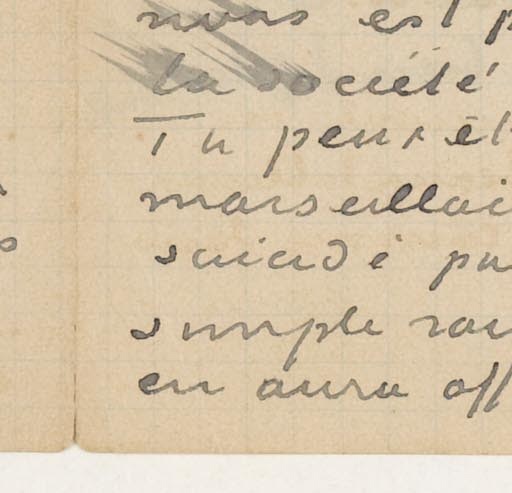 nous est p
la société
Tu peux êt
marseillai
suicidé pa
simple rai
en aura off